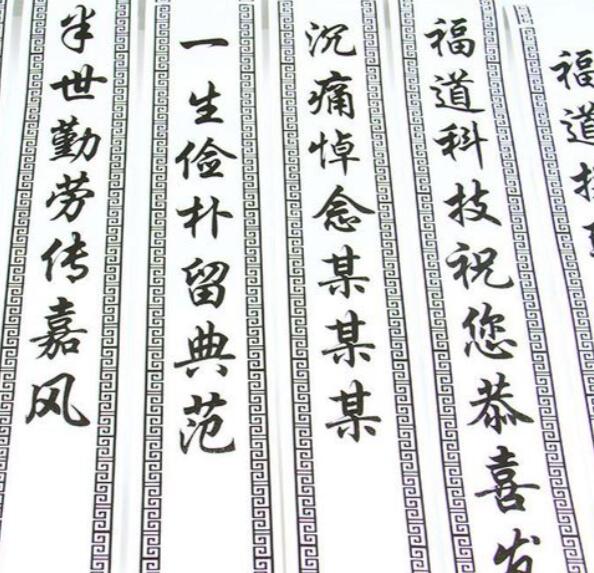 半世勤劳传嘉风
一生俭朴留典范
沉痛悼念某某某
福道科技祝您恭喜发
福道